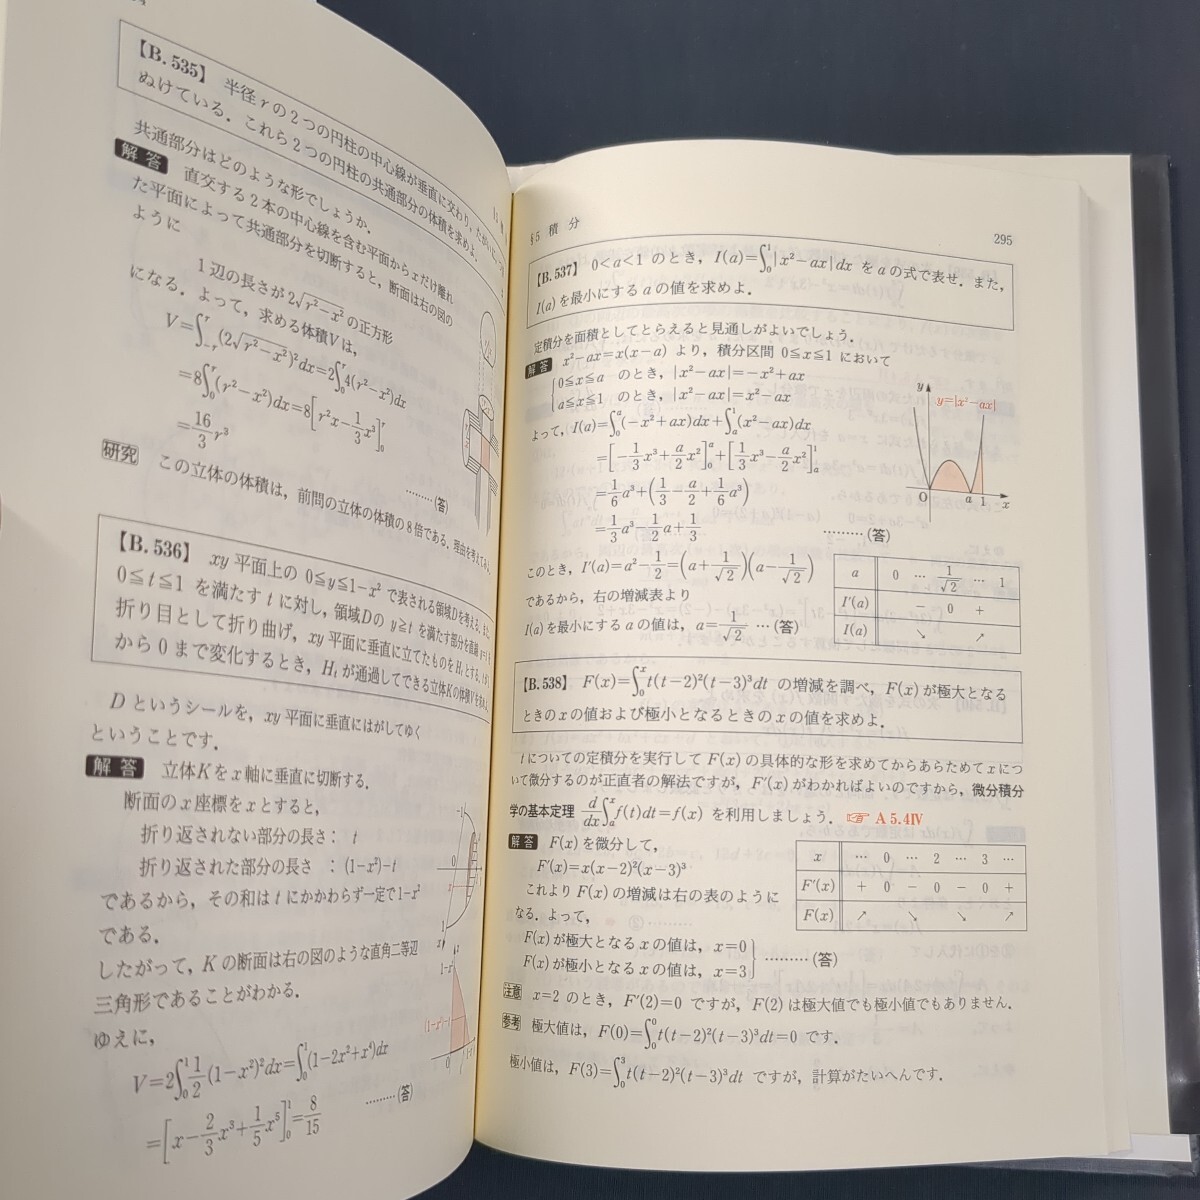 【B.535】 半径rの2つの円柱の中心線が垂直に交わり，たがいに
ぬけている．これら2つの円柱の共通部分の体積を求めよ．
共通部分はどのような形でしょうか．
解答 直交する2本の中心線を含む平面からxだけ離れ
た平面によって共通部分を切断すると，断面は右の図の
ように
1辺の長さが 2√(r²−x²) の正方形
になる．よって，求める体積Vは，
V=∫_{-r}^{r}(2√(r²−x²))²dx=2∫_0^r 4(r²−x²)dx
=8∫_0^r(r²−x²)dx=8[r²x−1/3x³]_0^r
=16/3 r³ ………(答)
研究 この立体の体積は，前問の立体の体積の8倍である．理由を考えてみ
【B.536】 xy平面上の 0≦y≦1−x² で表される領域Dを考える．
0≦t≦1 を満たす t に対し，領域Dの y≧t を満たす部分を直線 y=t を
折り目として折り曲げ，xy平面に垂直に立てたものを H_t とする．
から 0 まで変化するとき，H_t が通過してできる立体Kの体積Vを求め
Dというシールを，xy平面に垂直にはがしてゆく
ということです．
解答 立体Kをx軸に垂直に切断する．
断面のx座標をxとすると，
折り返されない部分の長さ： t
折り返された部分の長さ ：(1−x²)−t
であるから，その和は t にかかわらず一定で 1−x²
である．
したがって，Kの断面は右の図のような直角二等辺
三角形であることがわかる．
ゆえに，
V=2∫_0^1 1/2(1−x²)²dx=∫_0^1(1−2x²+x⁴)dx
=[x−2/3x³+1/5x⁵]_0^1=8/15 ………(答)
§5 積 分 295
【B.537】 0<a<1 のとき，I(a)=∫_0^1|x²−ax|dx を a の式で表せ．また，
I(a)を最小にする a の値を求めよ．
定積分を面積としてとらえると見通しがよいでしょう．
解答 x²−ax=x(x−a) より，積分区間 0≦x≦1 において
0≦x≦a のとき，|x²−ax|=−x²+ax
a≦x≦1 のとき，|x²−ax|=x²−ax
よって，I(a)=∫_0^a(−x²+ax)dx+∫_a^1(x²−ax)dx
=[−1/3x³+a/2x²]_0^a+[1/3x³−a/2x²]_a^1
=1/6a³+(1/3−a/2+1/6a³)
=1/3a³−1/2a+1/3 ………(答)
y
y=|x²−ax|
O a 1 x
このとき，I′(a)=a²−1/2=(a+1/√2)(a−1/√2)
であるから，右の増減表より
I(a)を最小にする a の値は，a=1/√2 …(答)
a 0 … 1/√2 … 1
I′(a) − 0 +
I(a) ↘ ↗
【B.538】 F(x)=∫_0^x t(t−2)²(t−3)³dt の増減を調べ，F(x) が極大となる
ときの x の値および極小となるときの x の値を求めよ．
t についての定積分を実行して F(x) の具体的な形を求めてからあらためて x につ
いて微分するのが正直者の解法ですが，F′(x) がわかればよいのですから，微分積分
学の基本定理 d/dx∫_a^x f(t)dt=f(x) を利用しましょう．☞ A 5.4Ⅳ
解答 F(x) を微分して，
F′(x)=x(x−2)²(x−3)³
これより F(x) の増減は右の表のように
なる．よって，
F(x) が極大となる x の値は，x=0
F(x) が極小となる x の値は，x=3 ………(答)
x … 0 … 2 … 3 …
F′(x) + 0 − 0 − 0 +
F(x) ↗ ↘ ↘ ↗
注意 x=2 のとき，F′(2)=0 ですが，F(2) は極大値でも極小値でもありません．
参考 極大値は，F(0)=∫_0^0 t(t−2)²(t−3)³dt=0 です．
極小値は，F(3)=∫_0^3 t(t−2)²(t−3)³dt ですが，計算がたいへんです．